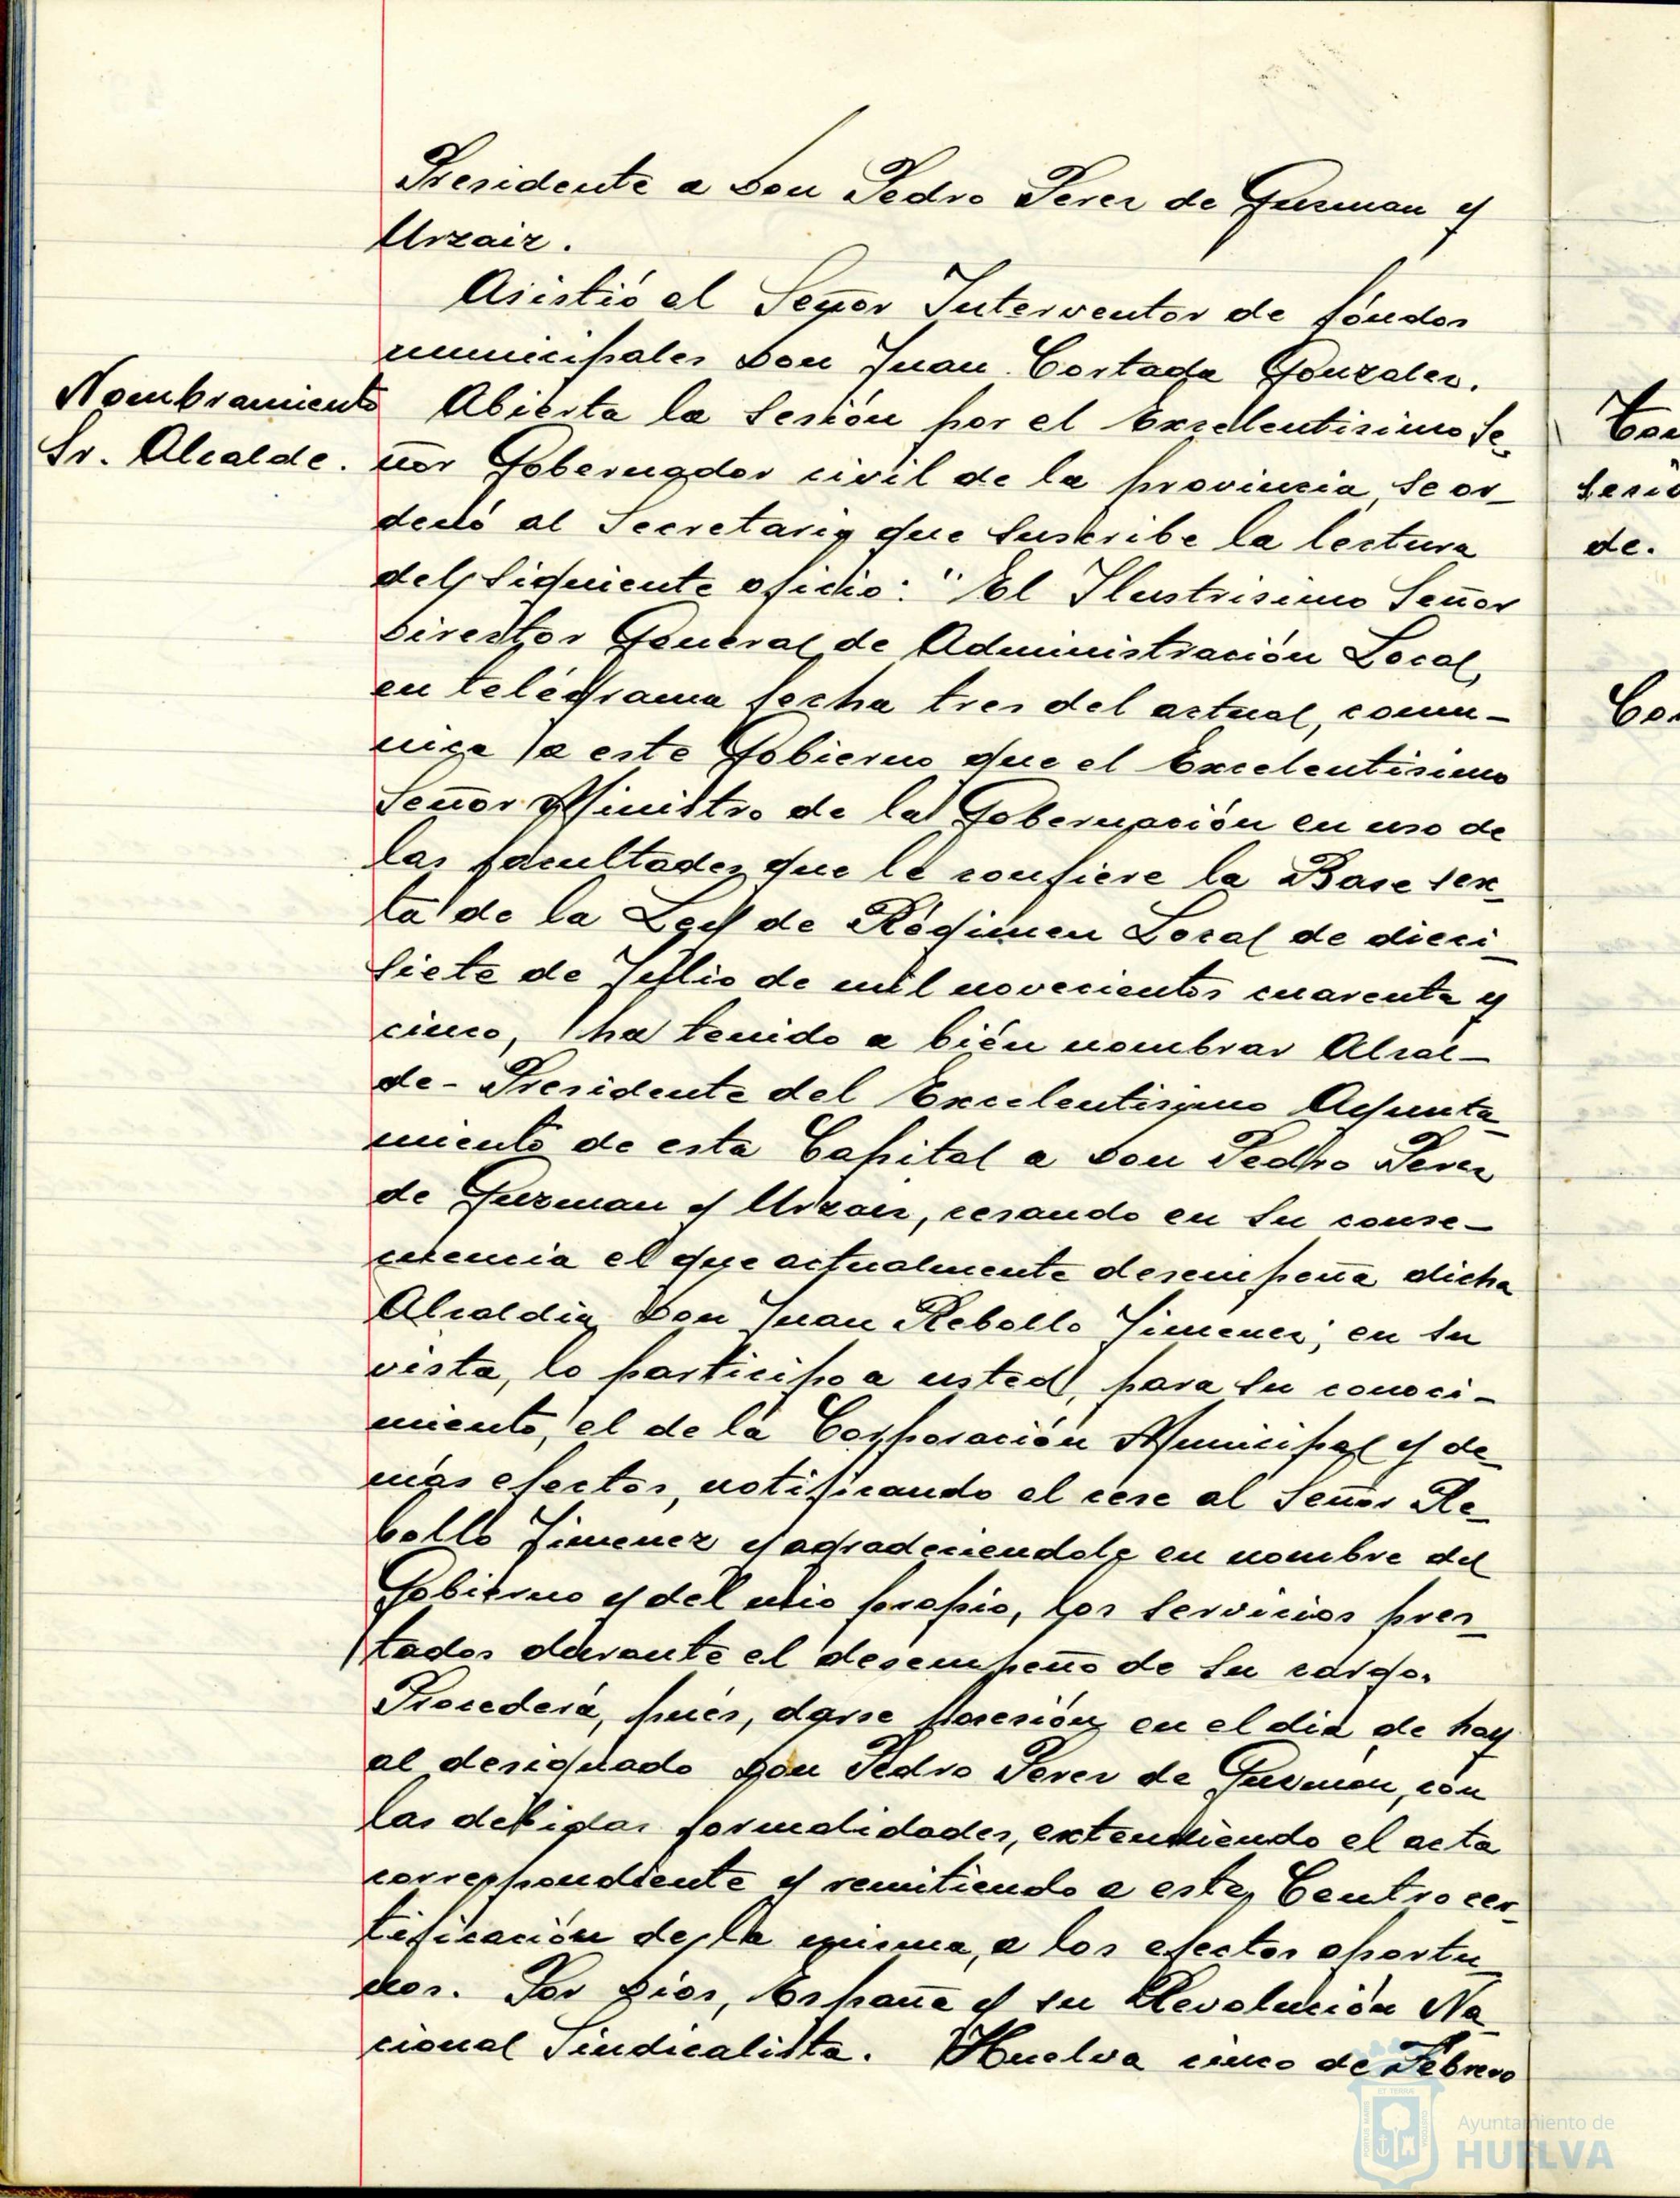 Presidente a Don Pedro Perez de Guzman y
Urzaiz.
Asistió el Señor Interventor de fóndos
municipales Don Juan Cortada Gonzalez.
Nombramiento
Sr. Alcalde.
Abierta la Sesión por el Excelentisimo Se-
ñor Gobernador civil de la provincia, se or-
denó al Secretario que suscribe la lectura
del siguiente oficio: "El Ilustrisimo Señor
Director General de Administración Local,
en telégrama fecha tres del actual, comu-
nica a este Gobierno que el Excelentisimo
Señor Ministro de la Gobernación en uso de
las facultades que le confiere la Base sex-
ta de la Ley de Régimen Local de dieci-
siete de Julio de mil novecientos cuarenta y
cinco, ha tenido a bién nombrar Alcal-
de-Presidente del Excelentisimo Ayunta-
miento de esta Capital a Don Pedro Perez
de Guzman y Urzaiz, cesando en su conse-
cuencia el que actualmente desempeña dicha
Alcaldia Don Juan Rebollo Jimenez; en su
vista, lo participo a usted, para su conoci-
miento, el de la Corporación Municipal y de-
más efectos, notificando el cese al Señor Re-
bollo Jimenez y agradeciendole en nombre del
Gobierno y del mio propio, los servicios pres-
tados durante el desempeño de su cargo.
Procederá, pués, darse posesión en el dia de hoy
al designado Don Pedro Perez de Guzmán, con
las debidas formalidades, extendiendo el acta
correspondiente y remitiendo a este Centro cer-
tificación de la misma, a los efectos oportu-
nos. Por Dios, España y su Revolución Na-
cional Sindicalista. Huelva cinco de Febrero
Sesió
de.
Ayuntamiento de
HUELVA